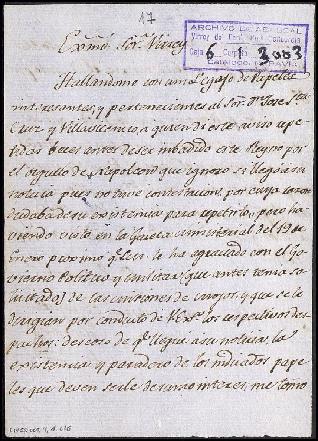 17
ARCHIVO DE ABASCAL
6 1 3
Exmo. Sor. Virrey
Hallandome con un Legajo de Papeles
interesantes, y pertenecientes al Sor. Dn. Jose
Cruz y Villavicencio, a quien di este aviso repe-
tidas veces antes de ser imbadido este Reyno por
el orgullo de Napoleon que ignoro si llegó á su
noticia pues no tuve contextacion, por cuya razon
dudaba de su existencia para repetirlo, pero ha-
viendo visto en la Gaceta ministerial del 19 de
proximo qe. S. M. le ha agraciado con el Go-
vierno Politico y militar (que antes tenia so-
licitado) de las misiones de moxos, y que se le
dirigian por conducto de V. E. los respectivos des-
pachos: deseoso de qe. llegue a su noticia, la
existencia y paradero de los indicados pape-
les que deven serle de sumo interes, me tomo